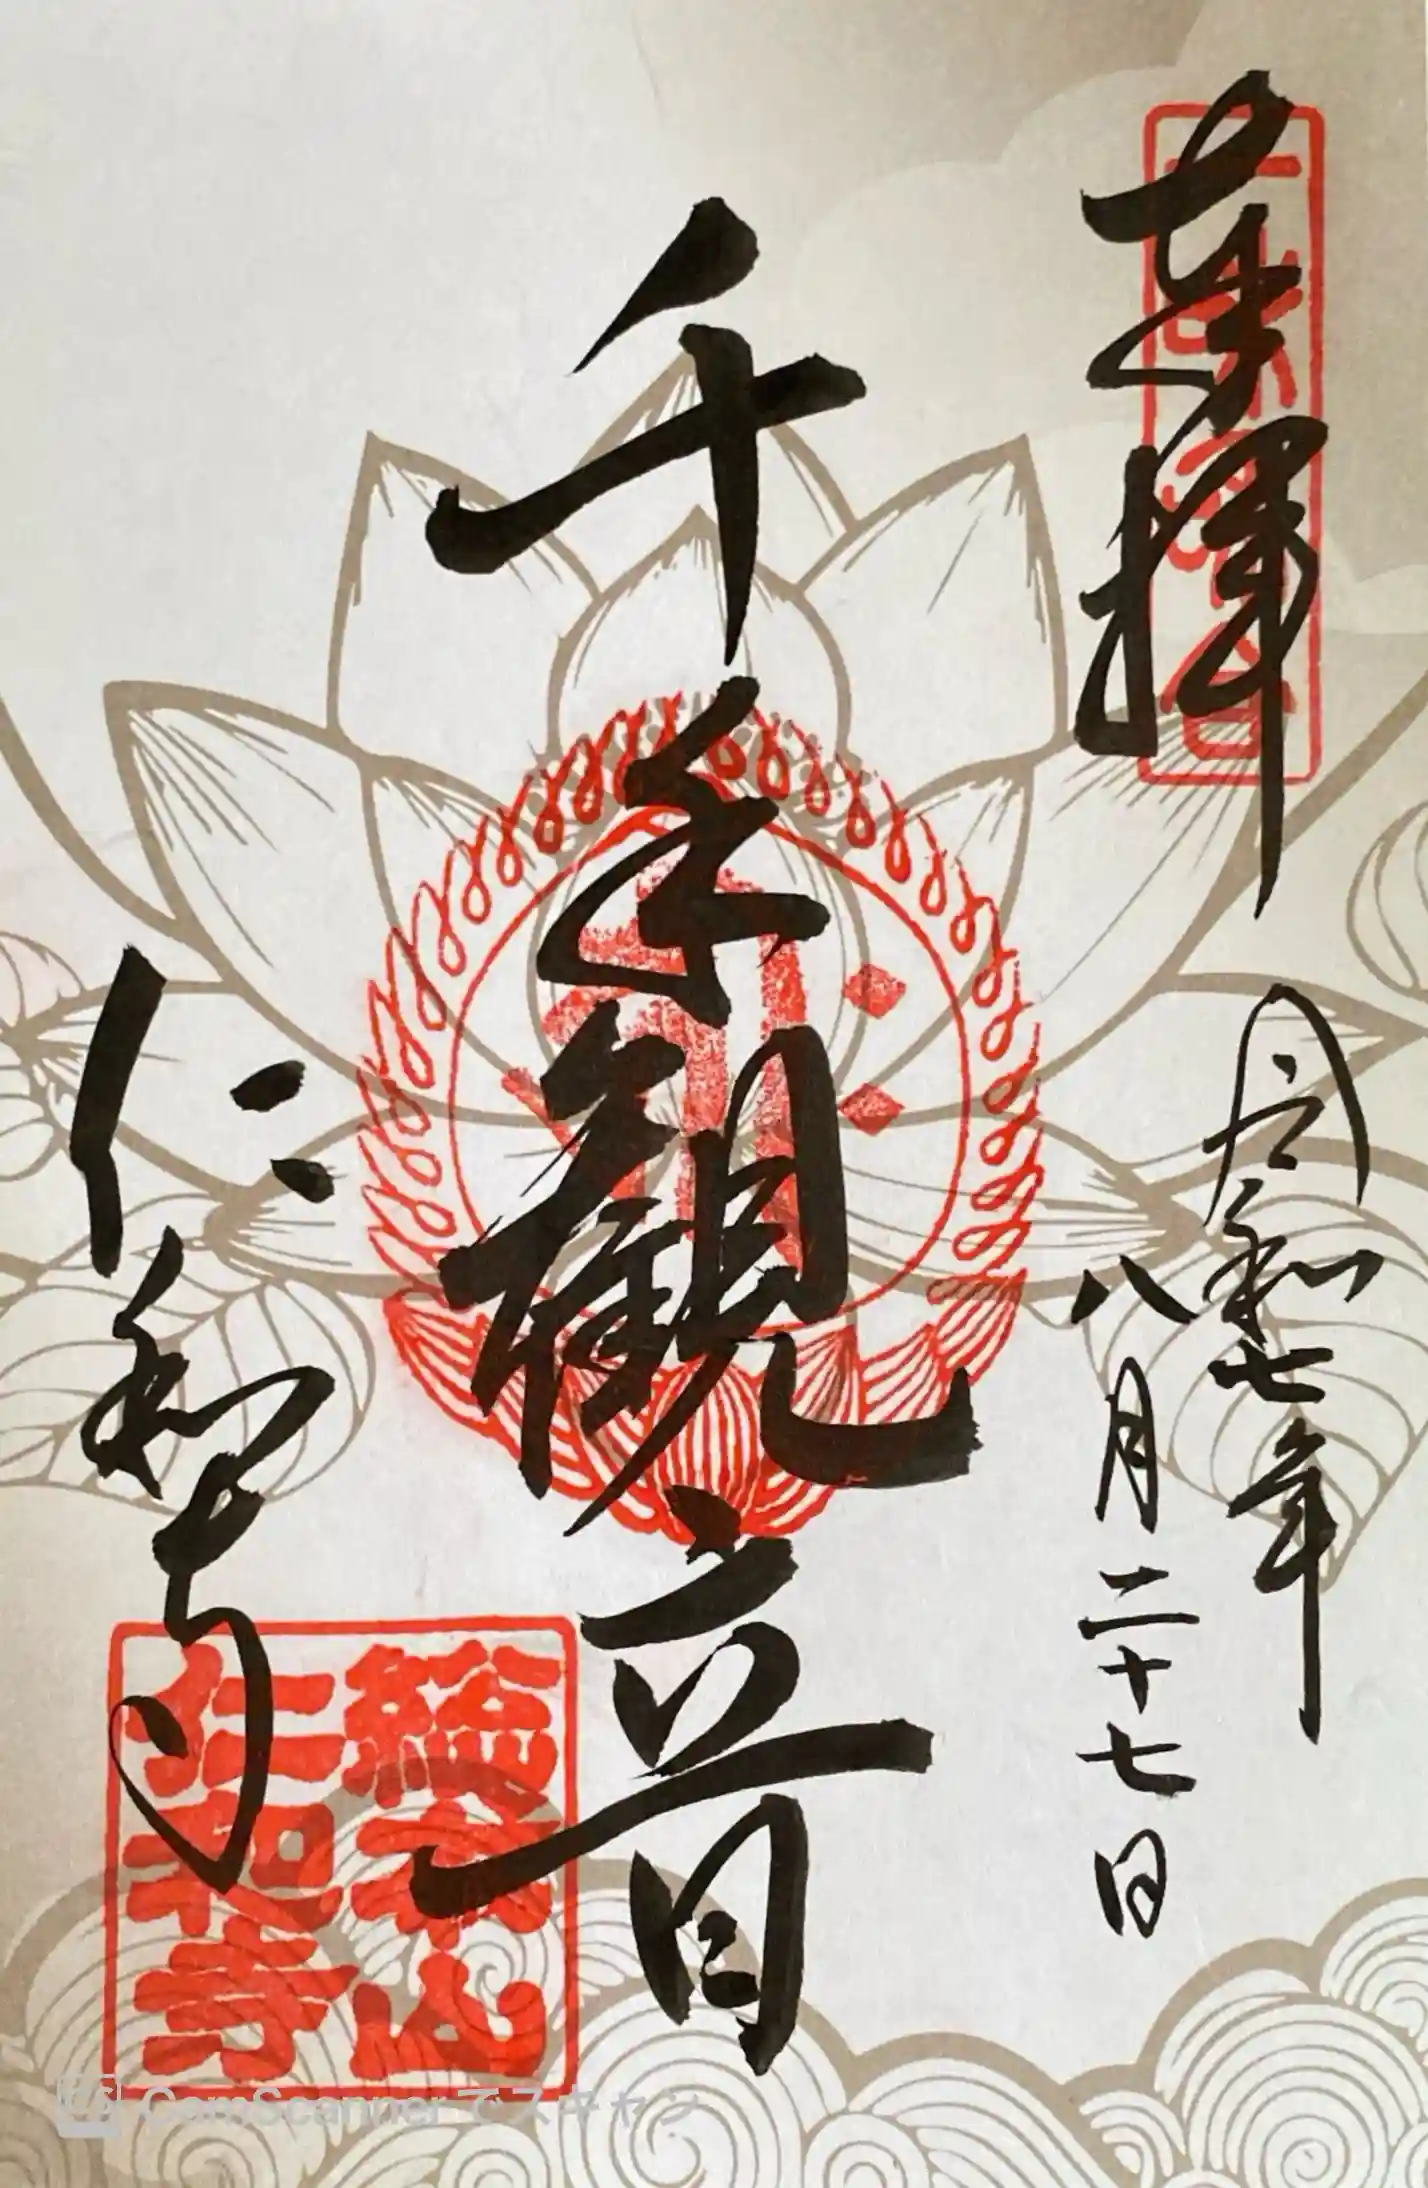 奉拝
令和七年
八月二十七日
千手観音
仁和寺
総本山
仁和寺
CamScanner でスキャン